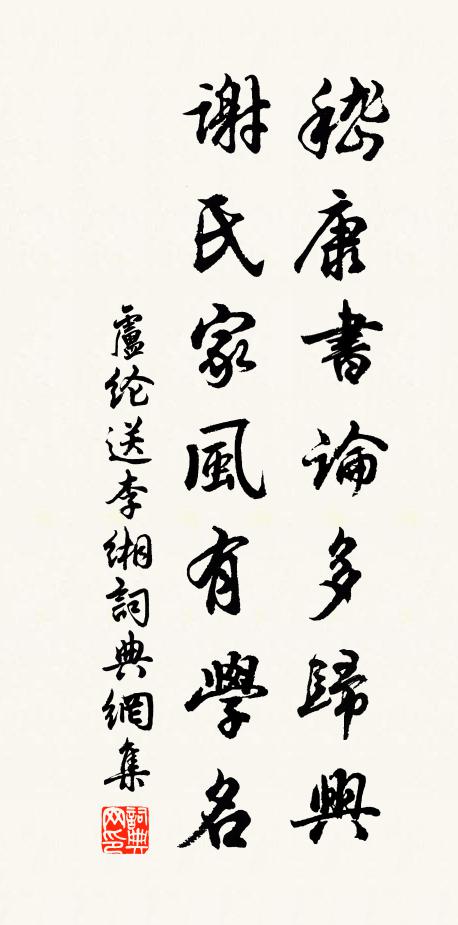 嵇康書論多歸興
謝氏家風有學名
盧纶送李缃詞典網集
詞典网印